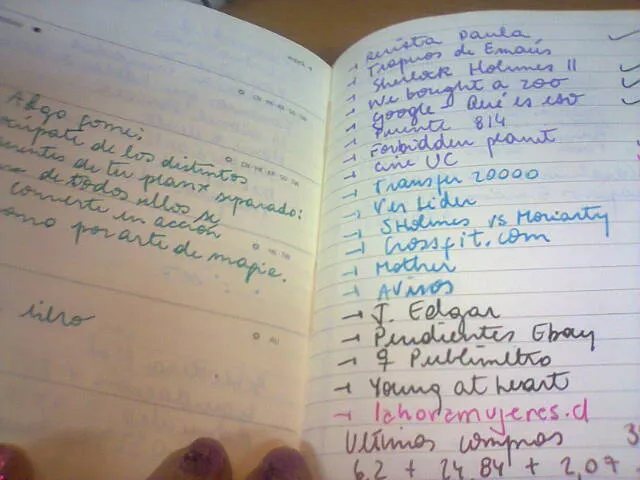 Algo pome:
ocúpate de los distintos
de tu plan x separado:
de todos ellos se
convierte en acción
como por arte de magia.
libro
→ Revista Paula
→ Trapitos de Emaús
→ Sherlock Holmes II
→ We bought a zoo
→ Google - Qué es eso
→ Puente 814
→ Forbidden planet
→ Cine UC
→ Transfer 20000
→ Ver Lider
→ SHolmes vs Moriarty
→ Crossfit.com
→ Mother
→ Avisos
→ J. Edgar
→ Pendientes Ebay
→ Publimetro
→ Young at heart
→ lahoramujeres.cl
Ultimas compras
6,2 + 24,84 + 2,07